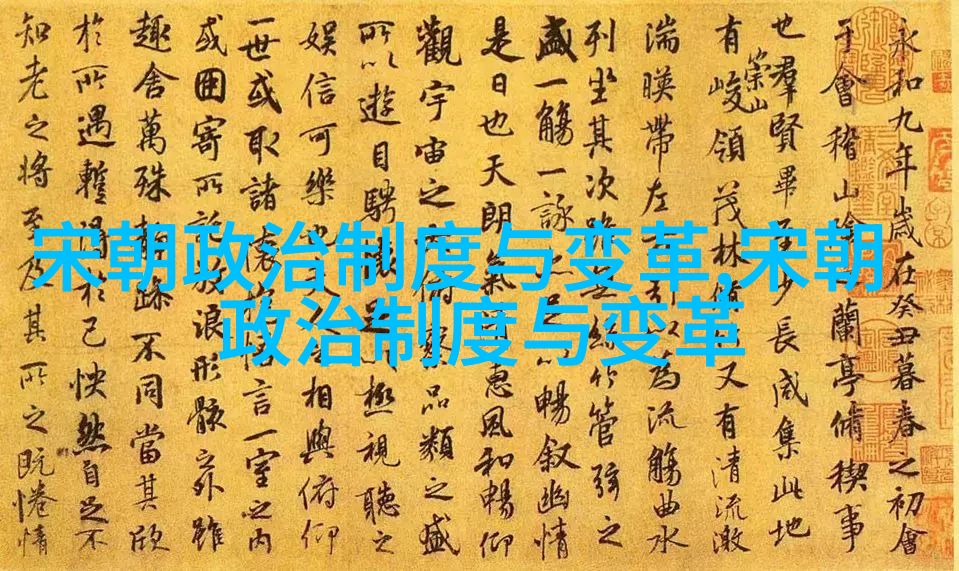 宋朝政治制度与变革,宋朝
政治制度与变革
永和九年歲在癸丑暮春之初會
于會稽山陰蘭亭脩稧事
也羣賢畢至少長咸集此地
有崇山峻領茂林又有清流激
湍暎帶左引以為流觴曲水
列坐其次雖無絲竹管弦之
盛一觴一詠足以暢叙幽情
是日也天朗氣惠風和暢仰
觀宇宙之俯察品類之盛
所以遊目騁懷足極視聽之
娛信可樂也人之相與俯仰
一世或取諸懷抱悟言一室之內
或因寄所託放浪形骸之外雖
趣舍萬殊靜躁不同當其欣
於所遇暫得於己怏然自足不
知老之將至及其所之既惓情